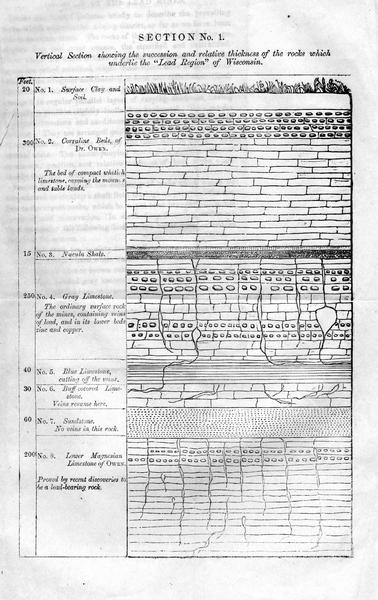 SECTION No. 1.
Vertical Section showing the succession and relative thickness of the rocks which
underlie the "Lead Region" of Wisconsin.
Feet.
20 No. 1. Surface Clay and
Soil.
300 No. 2. Coralline Beds, of
Dr. Owen.
The bed of compact
limestone, capping the mounds
and table lands.
15 No. 3. Nucula Shale.
250 No. 4. Gray Limestone.
The ordinary surface rock
of the mines, containing veins
of lead, and in its lower beds
zinc and copper.
40 No. 5. Blue Limestone,
cutting off the veins.
30 No. 6. Buff colored Lime-
stone.
Veins resume here.
60 No. 7. Sandstone.
No veins in this rock.
200 No. 8. Lower Magnesian
Limestone of Owen.
Proved by recent discoveries to
be a lead-bearing rock.